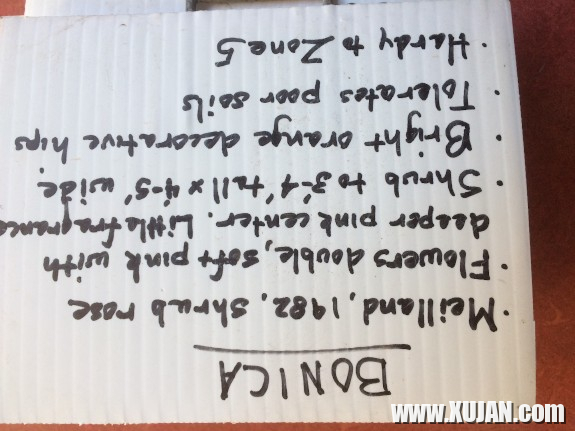 BONICA
· Meilland, 1982, shrub rose
· Flowers double, soft pink with
deeper pink center. Little fragrance
· Shrub to 3'-4' tall x 4'-5' wide.
· Bright orange decorative hips
· Tolerates poor soils
· Hardy to Zone 5
www.XUJAN.com